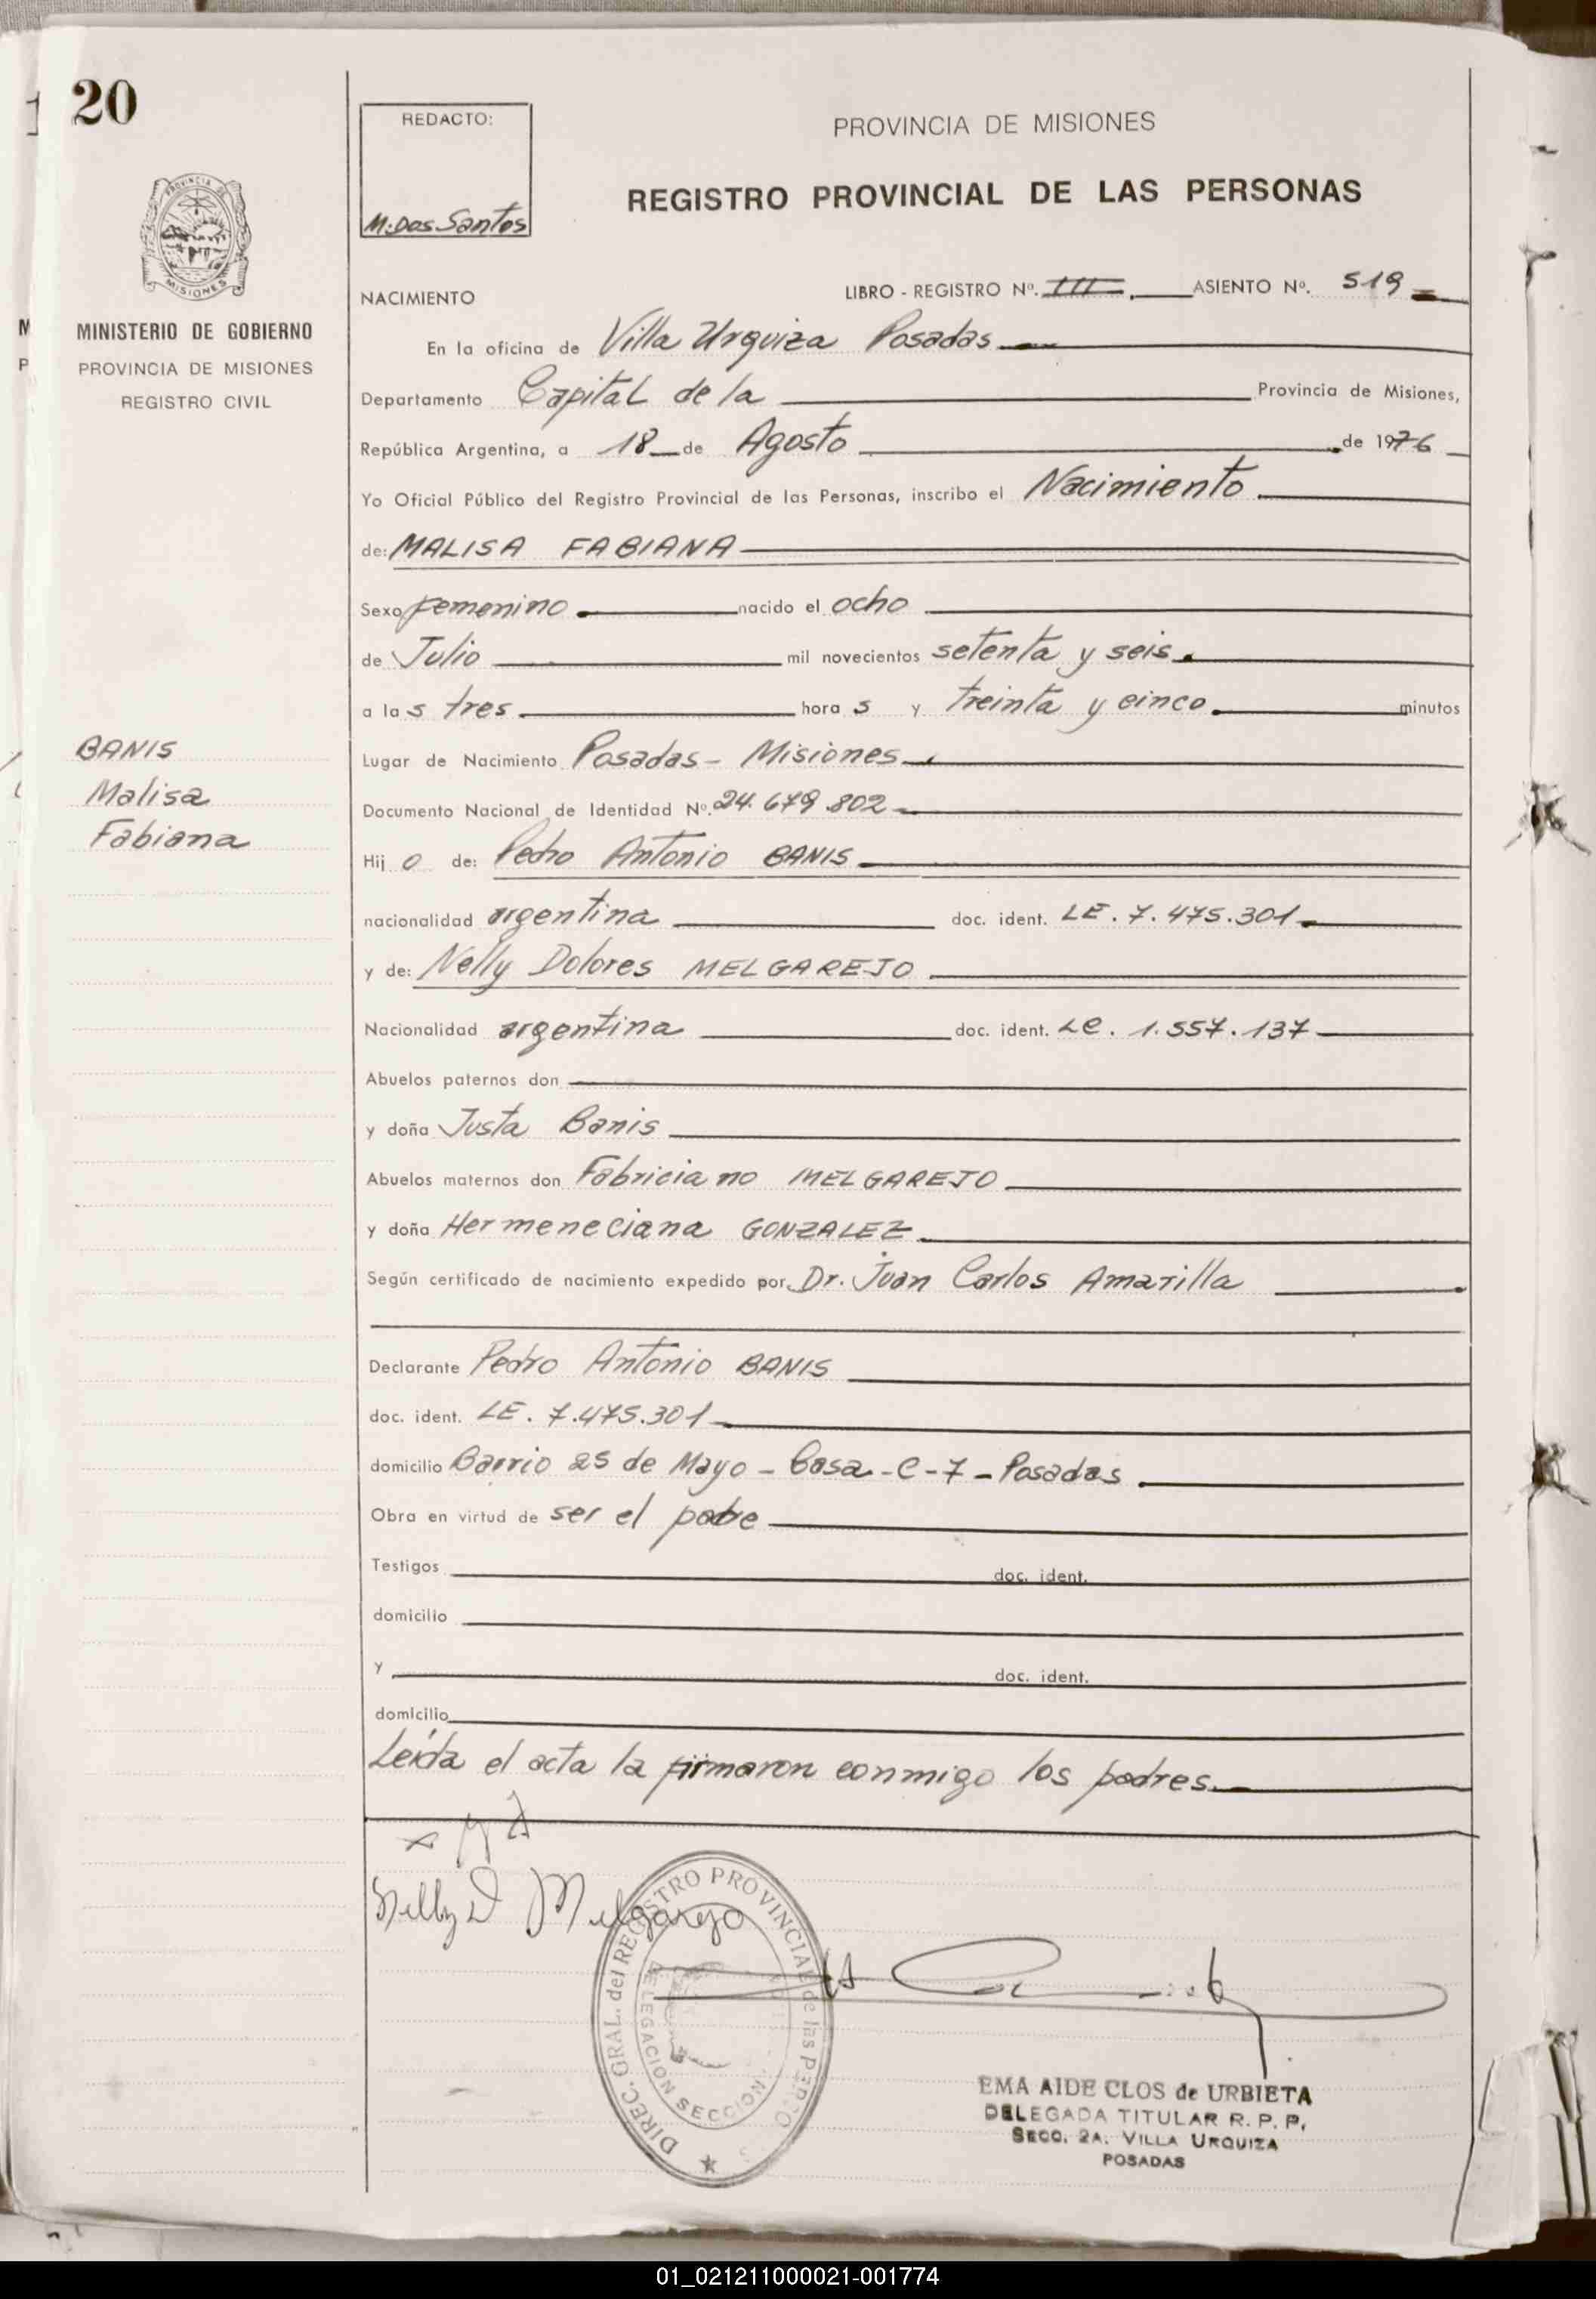 20
REDACTO:
M. Dos Santos
PROVINCIA DE MISIONES
REGISTRO PROVINCIAL DE LAS PERSONAS
PROVINCIA DE
MISIONES
MINISTERIO DE GOBIERNO
PROVINCIA DE MISIONES
REGISTRO CIVIL
NACIMIENTO
LIBRO - REGISTRO Nº. III ASIENTO Nº. 519
En la oficina de Villa Urquiza Posadas
Departamento Capital de la Provincia de Misiones,
República Argentina, a 18 de Agosto de 1976
Yo Oficial Público del Registro Provincial de las Personas, inscribo el Nacimiento
de: MALISA FABIANA
Sexo femenino nacido el ocho
de Julio mil novecientos setenta y seis.
a las tres hora s y treinta y cinco minutos
BANIS
Malisa
Fabiana
Lugar de Nacimiento Posadas - Misiones
Documento Nacional de Identidad Nº. 24.679.802
Hij o de: Pedro Antonio BANIS
nacionalidad argentina doc. ident. LE. 7.475.301
y de: Nelly Dolores MELGAREJO
Nacionalidad argentina doc. ident. Lc. 1.557.137
Abuelos paternos don
y doña Justa Banis
Abuelos maternos don Fabriciano MELGAREJO
y doña Hermeneciana GONZALEZ
Según certificado de nacimiento expedido por Dr. Juan Carlos Amarilla
Declarante Pedro Antonio BANIS
doc. ident. LE. 7.475.301
domicilio Barrio 25 de Mayo - Casa - C - 7 - Posadas
Obra en virtud de ser el padre
Testigos doc. ident.
domicilio
y doc. ident.
domicilio
Leída el acta la firmaron conmigo los padres.
Nelly D Melgarejo
DIREC. GRAL. del REGISTRO PROVINCIAL de las
DELEGACION SECCION
EMA AIDE CLOS de URBIETA
DELEGADA TITULAR R. P. P.
SECC. 2A. VILLA URQUIZA
POSADAS
01_021211000021-001774